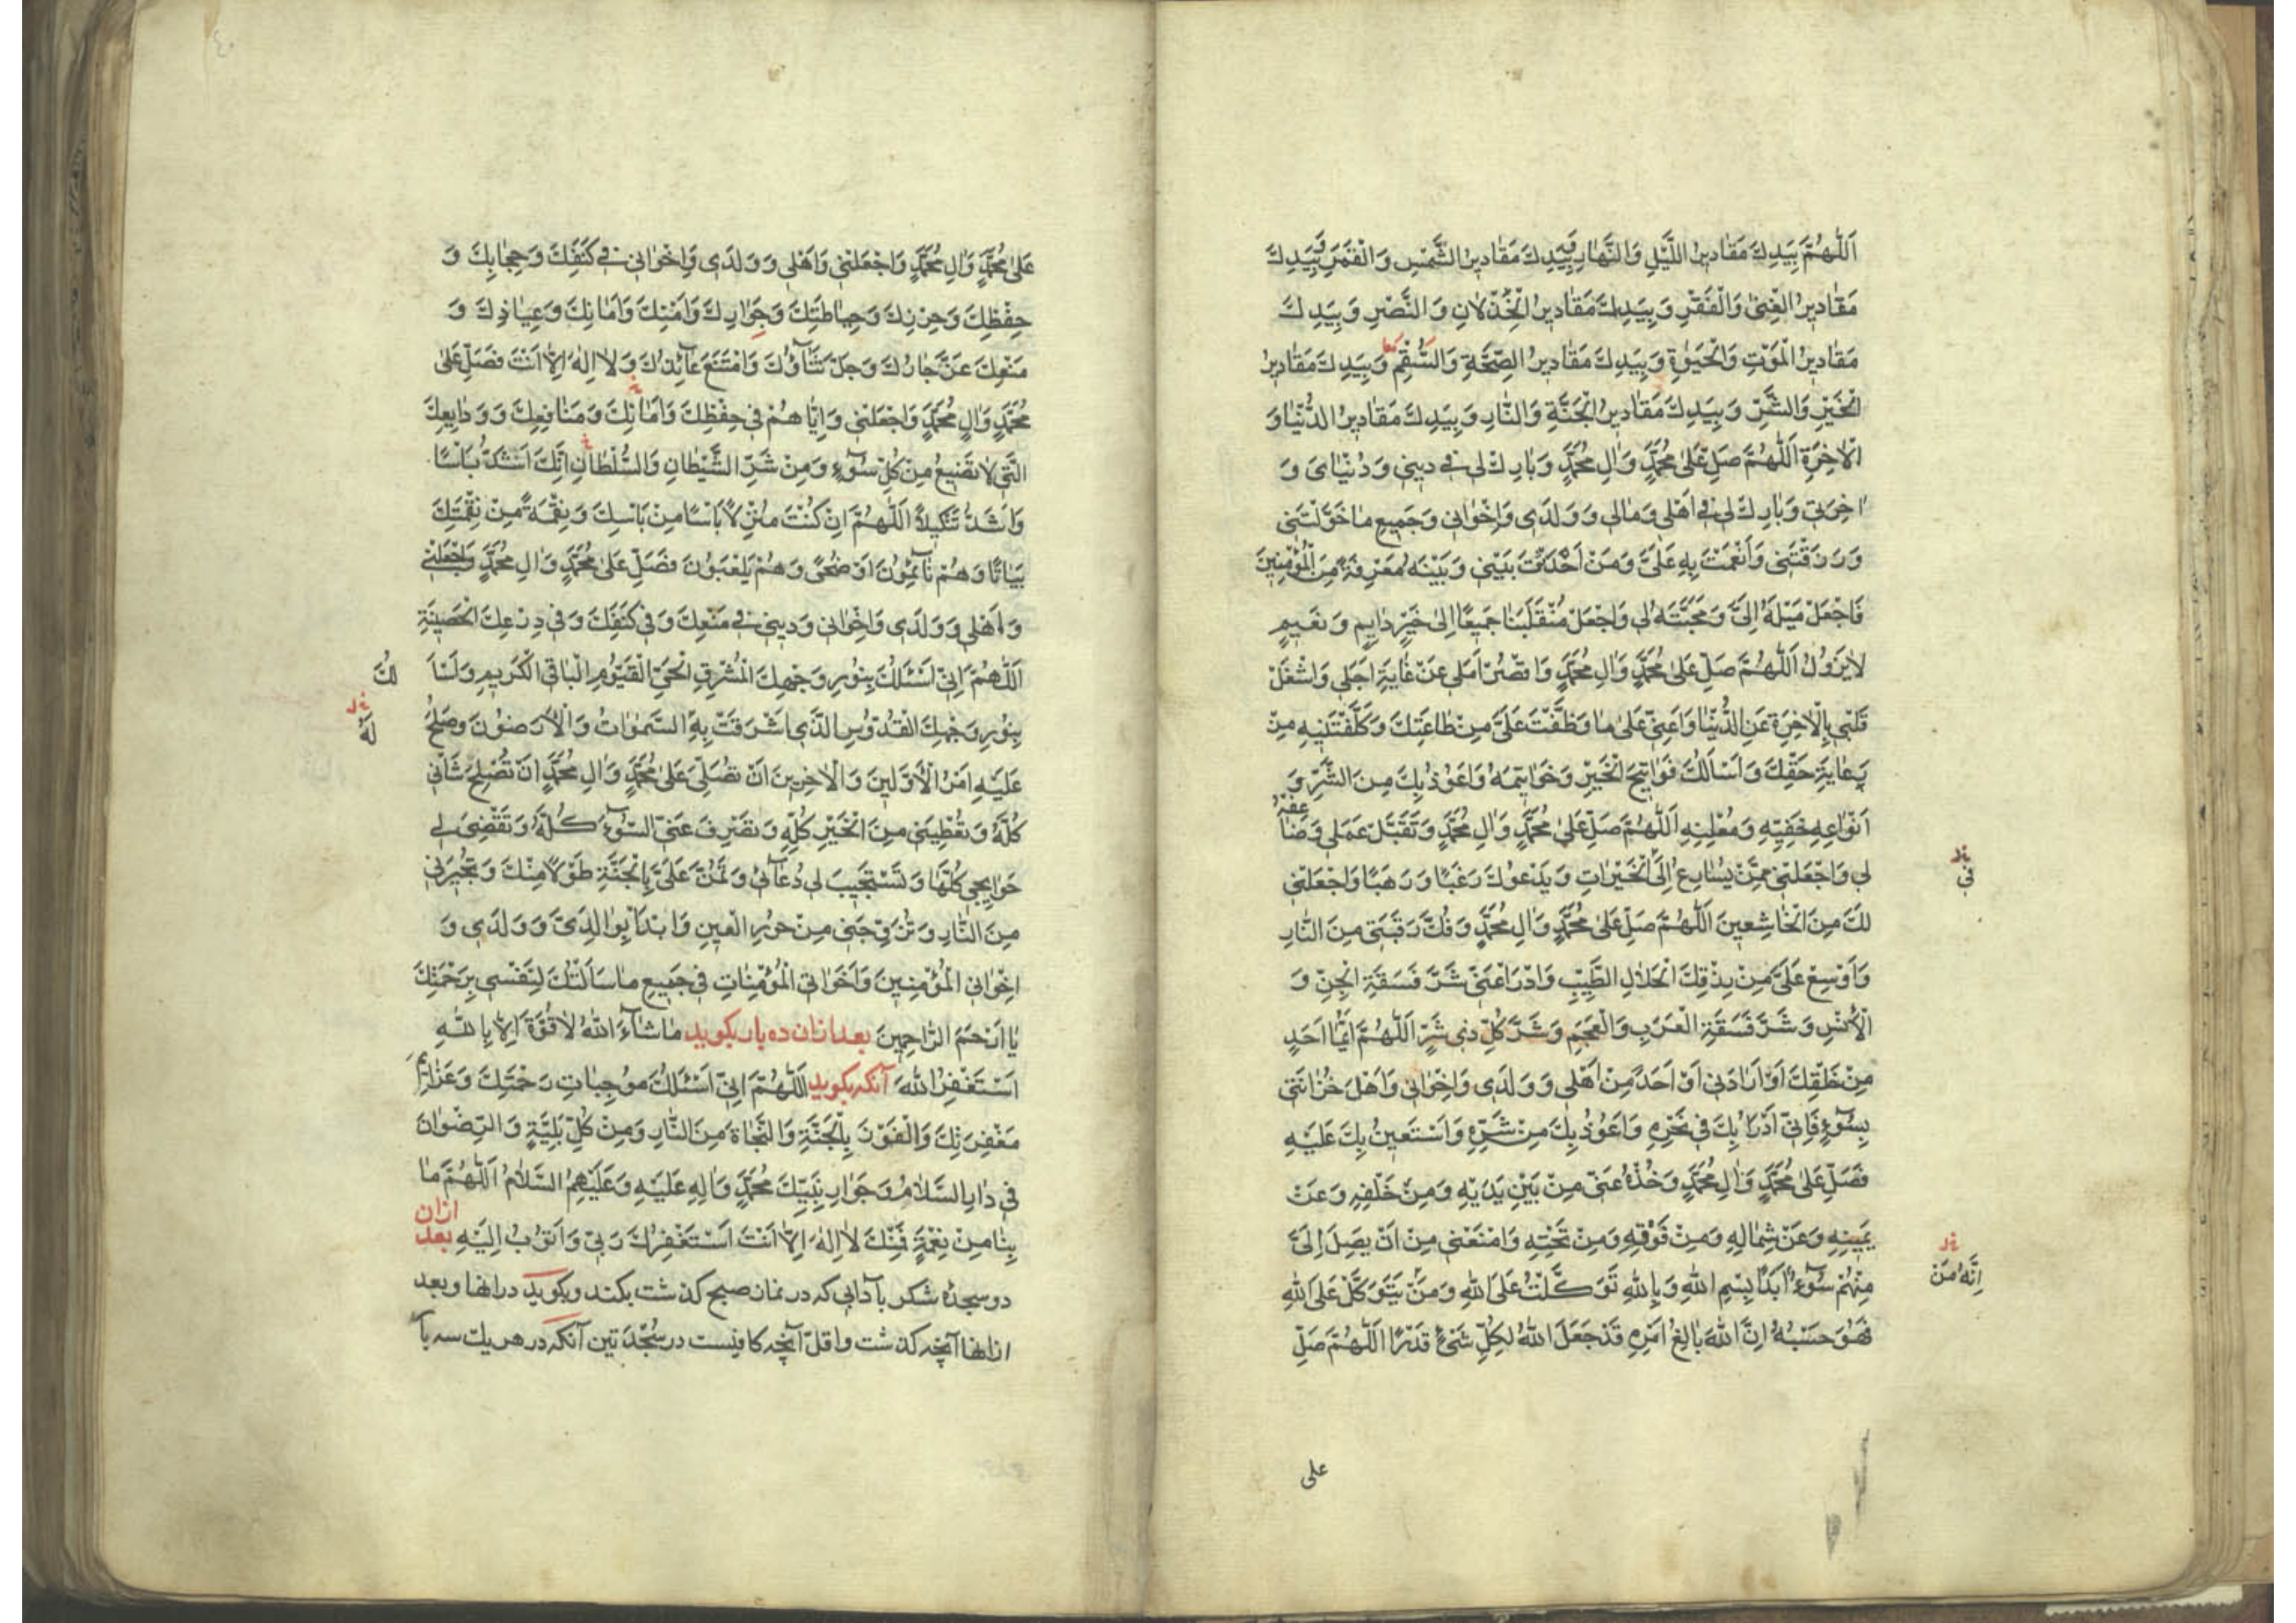 اَللّٰهُمَّ بِيَدِكَ مَقَادِيرُ اللَّيْلِ وَالنَّهَارِ بِيَدِكَ مَقَادِيرُ الشَّمْسِ وَالْقَمَرِ بِيَدِكَ
مَقَادِيرُ الْغِنىٰ وَالْفَقْرِ وَبِيَدِكَ مَقَادِيرُ الْخِذْلَانِ وَالنَّصْرِ وَبِيَدِكَ
مَقَادِيرُ الْمَوْتِ وَالْحَيٰوةِ وَبِيَدِكَ مَقَادِيرُ الصِّحَّةِ وَالسُّقْمِ وَبِيَدِكَ مَقَادِيرُ
معا
الْخَيْرِ وَالشَّرِّ وَبِيَدِكَ مَقَادِيرُ الْجَنَّةِ وَالنَّارِ وَبِيَدِكَ مَقَادِيرُ الدُّنْيَا وَ
الْاٰخِرَةِ اَللّٰهُمَّ صَلِّ عَلىٰ مُحَمَّدٍ وَاٰلِ مُحَمَّدٍ وَبَارِكْ لِي فِي دِينِي وَدُنْيَايَ وَ
اٰخِرَتِي وَبَارِكْ لِي فِي اَهْلِي وَمَالِي وَوَلَدِي وَاِخْوَانِي وَجَمِيعِ مَا خَوَّلْتَنِي
وَرَزَقْتَنِي وَاَنْعَمْتَ بِهِ عَلَيَّ وَمَنْ اَحْدَثْتَ بَيْنِي وَبَيْنَهُ مَعْرِفَةً مِنَ الْمُؤْمِنِينَ
فَاجْعَلْ مَيْلَهُ اِلَيَّ وَمَحَبَّتَهُ لِي وَاجْعَلْ مُنْقَلَبَنَا جَمِيعًا اِلىٰ خَيْرٍ دَايِمٍ وَنَعِيمٍ
لَا يَزُولُ اَللّٰهُمَّ صَلِّ عَلىٰ مُحَمَّدٍ وَاٰلِ مُحَمَّدٍ وَاقْصُرْ اَمَلِي عَنْ غَايَةِ اَجَلِي وَاشْغَلْ
قَلْبِي بِالْاٰخِرَةِ عَنِ الدُّنْيَا وَاَعِنِّي عَلىٰ مَا وَظَّفْتَ عَلَيَّ مِنْ طَاعَتِكَ وَكَلَّفْتَنِيهِ مِنْ
رِعَايَةِ حَقِّكَ وَاَسْاَلُكَ فَوَاتِحَ الْخَيْرِ وَخَوَاتِمَهُ وَاَعُوذُ بِكَ مِنَ الشَّرِّ وَ
اَنْوَاعِهِ خَفِيِّهِ وَمُعْلَنِهِ اَللّٰهُمَّ صَلِّ عَلىٰ مُحَمَّدٍ وَاٰلِ مُحَمَّدٍ وَتَقَبَّلْ عَمَلِي وَضَاعِفْهُ
لِي وَاجْعَلْنِي مِمَّنْ يُسَارِعُ اِلَى الْخَيْرَاتِ وَيَدْعُوكَ رَغَبًا وَرَهَبًا وَاجْعَلْنِي
في
لَكَ مِنَ الْخَاشِعِينَ اَللّٰهُمَّ صَلِّ عَلىٰ مُحَمَّدٍ وَاٰلِ مُحَمَّدٍ وَفُكَّ رَقَبَتِي مِنَ النَّارِ
وَاَوْسِعْ عَلَيَّ مِنْ رِزْقِكَ الْحَلَالِ الطَّيِّبِ وَادْرَاْ عَنِّي شَرَّ فَسَقَةِ الْجِنِّ وَ
الْاِنْسِ وَشَرَّ فَسَقَةِ الْعَرَبِ وَالْعَجَمِ وَشَرَّ كُلِّ ذِي شَرٍّ اَللّٰهُمَّ اَيُّمَا اَحَدٍ
مِنْ خَلْقِكَ اَوْ اَرَادَنِي اَوْ اَحَدًا مِنْ اَهْلِي وَوَلَدِي وَاِخْوَانِي وَاَهْلِ حُزَانَتِي
بِسُوٓءٍ فَاِنِّي اَدْرَاُ بِكَ فِي نَحْرِهِ وَاَعُوذُ بِكَ مِنْ شَرِّهِ وَاَسْتَعِينُ بِكَ عَلَيْهِ
فَصَلِّ عَلىٰ مُحَمَّدٍ وَاٰلِ مُحَمَّدٍ وَخُذْهُ عَنِّي مِنْ بَيْنِ يَدَيْهِ وَمِنْ خَلْفِهِ وَعَنْ
يَمِينِهِ وَعَنْ شِمَالِهِ وَمِنْ فَوْقِهِ وَمِنْ تَحْتِهِ وَامْنَعْنِي مِنْ اَنْ يَصِلَ اِلَيَّ
مِنْهُمْ سُوٓءٌ اَبَدًا بِسْمِ اللهِ وَبِاللهِ تَوَكَّلْتُ عَلَى اللهِ وَمَنْ يَتَوَكَّلْ عَلَى اللهِ
اِنَّهُ مَنْ
فَهُوَ حَسْبُهُ اِنَّ اللهَ بَالِغُ اَمْرِهِ قَدْ جَعَلَ اللهُ لِكُلِّ شَيْءٍ قَدْرًا اَللّٰهُمَّ صَلِّ
على
عَلىٰ مُحَمَّدٍ وَاٰلِ مُحَمَّدٍ وَاجْعَلْنِي وَاَهْلِي وَوَلَدِي وَاِخْوَانِي فِي كَنَفِكَ وَحِجَابِكَ وَ
حِفْظِكَ وَحِرْزِكَ وَحِيَاطَتِكَ وَجِوَارِكَ وَاَمْنِكَ وَاَمَانِكَ وَعِيَاذِكَ وَ
مَنْعِكَ عَزَّ جَارُكَ وَجَلَّ ثَنَآؤُكَ وَامْتَنَعَ عَآئِذُكَ وَلَا اِلٰهَ اِلَّا اَنْتَ فَصَلِّ عَلىٰ
مُحَمَّدٍ وَاٰلِ مُحَمَّدٍ وَاجْعَلْنِي وَاِيَّاهُمْ فِي حِفْظِكَ وَاَمَانِكَ وَمَنَافِعِكَ وَوَدَايِعِكَ
الَّتِي لَا تَضِيعُ مِنْ كُلِّ سُوٓءٍ وَمِنْ شَرِّ الشَّيْطَانِ وَالسُّلْطَانِ اِنَّكَ اَشَدُّ بَاْسًا
وَاَشَدُّ تَنْكِيلًا اَللّٰهُمَّ اِنْ كُنْتَ مُنْزِلًا بَاْسًا مِنْ بَاْسِكَ وَنِقْمَةً مِنْ نِقْمَتِكَ
بَيَاتًا وَهُمْ نَآئِمُونَ اَوْ ضُحًى وَهُمْ يَلْعَبُونَ فَصَلِّ عَلىٰ مُحَمَّدٍ وَاٰلِ مُحَمَّدٍ وَاجْعَلْنِي
وَاَهْلِي وَوَلَدِي وَاِخْوَانِي وَدِينِي فِي مَنْعِكَ وَفِي كَنَفِكَ وَفِي دِرْعِكَ الْحَصِينَةِ
اَللّٰهُمَّ اِنِّي اَسْئَلُكَ بِنُورِ وَجْهِكَ الْمُشْرِقِ الْحَيِّ الْقَيُّومِ الْبَاقِي الْكَرِيمِ وَاَسْاَ لُكَ
بِنُورِ وَجْهِكَ الْقُدُّوسِ الَّذِي اَشْرَقَتْ بِهِ السَّمٰوَاتُ وَالْاَرَضُونَ وَصَلُحَ
لَهُ
عَلَيْهِ اَمْرُ الْاَوَّلِينَ وَالْاٰخِرِينَ اَنْ تُصَلِّيَ عَلىٰ مُحَمَّدٍ وَاٰلِ مُحَمَّدٍ اَنْ تُصْلِحَ شَاْنِي
كُلَّهُ وَتُعْطِيَنِي مِنَ الْخَيْرِ كُلِّهِ وَتَصْرِفَ عَنِّي السُّوٓءَ كُلَّهُ وَتَقْضِيَ لِي
حَوَايِجِي كُلَّهَا وَتَسْتَجِيبَ لِي دُعَآئِي وَتَمُنَّ عَلَيَّ بِالْجَنَّةِ طَوْلًا مِنْكَ وَتُجِيرَنِي
مِنَ النَّارِ وَتُزَوِّجَنِي مِنْ حُورِ الْعِينِ وَابْدَاْ بِوَالِدَيَّ وَوَلَدِي وَ
اِخْوَانِي الْمُؤْمِنِينَ وَاَخَوَاتِي الْمُؤْمِنَاتِ فِي جَمِيعِ مَا سَاَلْتُكَ لِنَفْسِي بِرَحْمَتِكَ
يَا اَرْحَمَ الرَّاحِمِينَ بعد ازان ده بار بكويد مَا شَآءَ اللهُ لَا قُوَّةَ اِلَّا بِاللهِ
اَسْتَغْفِرُ اللهَ آنكه بكويد اَللّٰهُمَّ اِنِّي اَسْئَلُكَ مُوجِبَاتِ رَحْمَتِكَ وَعَزَايِمَ
مَغْفِرَتِكَ وَالْفَوْزَ بِالْجَنَّةِ وَالنَّجَاةَ مِنَ النَّارِ وَمِنْ كُلِّ بَلِيَّةٍ وَالرِّضْوَانَ
فِي دَارِ السَّلَامِ وَجِوَارِ نَبِيِّكَ مُحَمَّدٍ وَاٰلِهِ عَلَيْهِ وَعَلَيْهِمُ السَّلَامُ اَللّٰهُمَّ مَا
بِنَا مِنْ نِعْمَةٍ فَمِنْكَ لَا اِلٰهَ اِلَّا اَنْتَ اَسْتَغْفِرُكَ رَبِّي وَاَتُوبُ اِلَيْهِ بعد ازان
دو سجدۀ شكر بآدابى كه در نماز صبح كذشت بكند وبكويد در انها وبعد
ازانها آنچه كذشت واقلّ آنچه كافيست در سُجْدَتين آنكه در هر يك سه بار